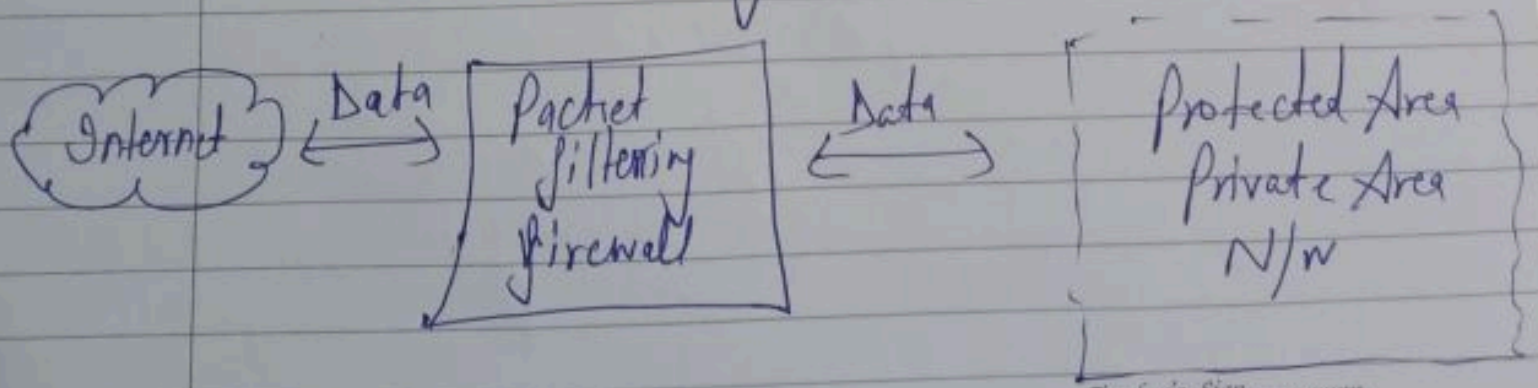 Internet
Data
Packet
filtering
firewall
Data
Protected Area
Private Area
N/W